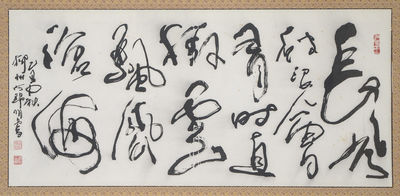 長風
破浪會
有時直
掛雲
帆濟
滄海